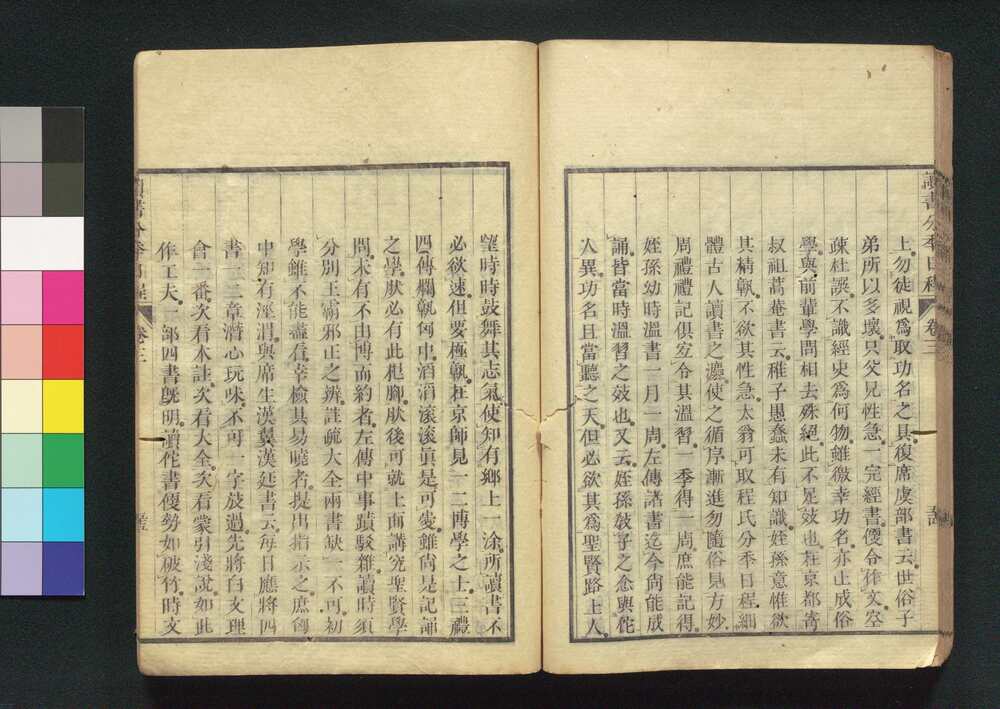 讀書分年日程 卷三
上勿徒視爲取功名之具復席虞部書云世俗子
弟所以多壞只父兄性急一完經書便令作文空
疎杜譔不識經史爲何物雖徼幸功名亦止成俗
學與前輩學問相去殊絕此不足效也在京都寄
叔祖蒿菴書云稚子愚蠢未有知識姪孫意惟欲
其精孰不欲其性急太翁可取程氏分秊日程細
體古人讀書之灋使之循序漸進勿隨俗見方妙
周禮禮記俱宜令其溫習一季得一周庶能記得
姪孫幼時溫書一月一周左傳諸書迄今尙能成
誦皆當時溫習之效也又云姪孫敎子之念與佗
人異功名且當聽之天但必欲其爲聖賢路上人
朢時時鼓舞其志氣使知有鄉上一涂所讀書不
必欲速但要極孰在京師見一二博學之士三禮
四傳爛孰匈中滔滔滚滚眞是可㤅雖尙是記誦
之學肰必有此根腳肰後可就上面講究聖賢學
問未有不由博而約者左傳中事蹟駁雜讀時須
分別王霸邪正之辨註疏大全兩書缺一不可初
學雖不能盡看幸檢其易曉者提出指示之庶匈
中知有涇渭與席生漢翼漢廷書云每日應將四
書一二章潛心玩味不可一字放過先將白文理
會一番次看本註次看大全次看蒙引淺說如此
作工夫一部四書旣明讀佗書便勢如破竹時文
讀書分年日程 卷三